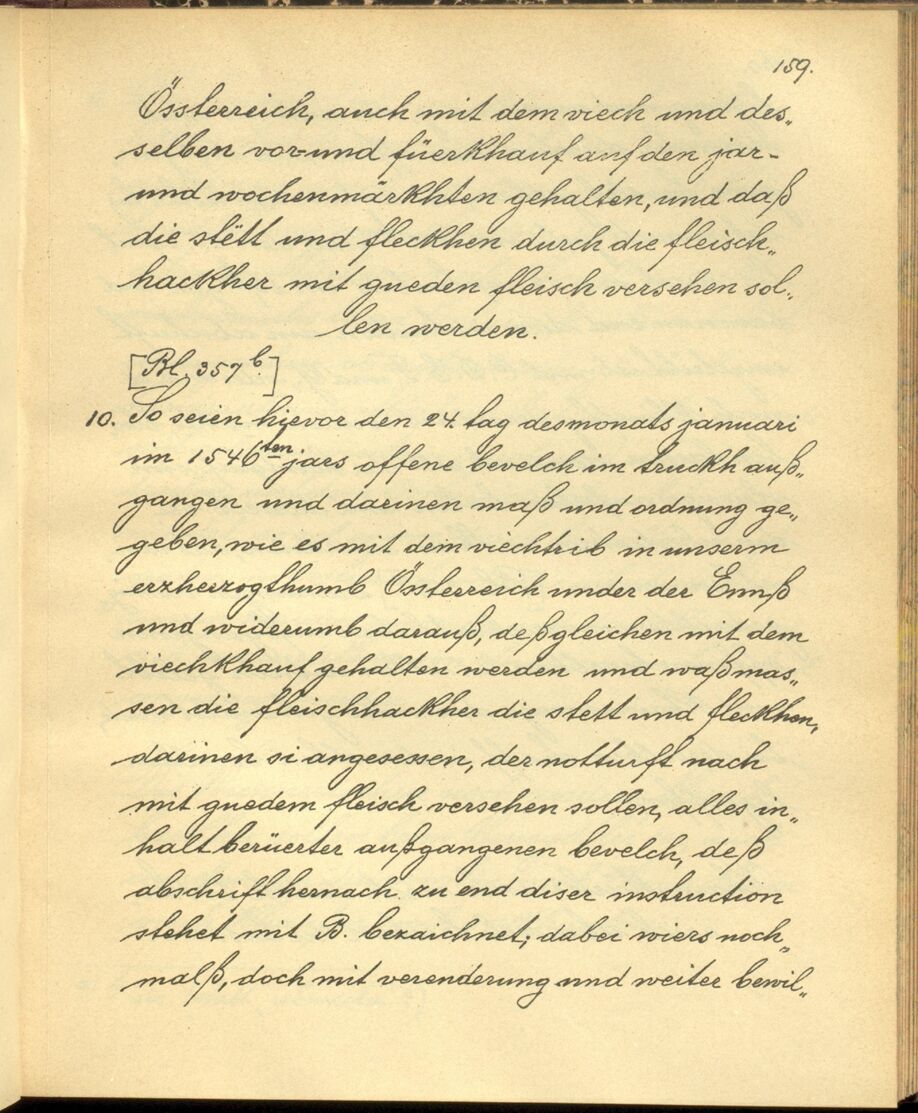 159.
Össterreich, auch mit dem viech und des„
selben vor= und füerkhauf auf den jar-
und wochenmärkhten gehalten, und daß
die stëtt und fleckhen durch die fleisch„
hackher mit gueden fleisch versehen sol„
len werden.
[Bl. 357 b.]
10. So seien hievor den 24. tag des monats januari
im 1546ten jars offene bevelch im truckh auß„
gangen und darinen maß und ordnung ge„
geben, wie es mit dem viechtrib in unserm
erzherzogthumb Össterreich under der Ennß
und widerumb darauß, deßgleichen mit dem
viechkhauf gehalten werden und waßmas„
sen die fleischhackher die stett und fleckhen,
darinen si angesessen, der notturft nach
mit guedem fleisch versehen sollen, alles in„
halt berüerter außgangenen bevelch, deß
abschrift hernach zu end diser instruction
stehet mit B. bezaichnet; dabei wiers noch„
malß, doch mit verenderung und weiter bewil„